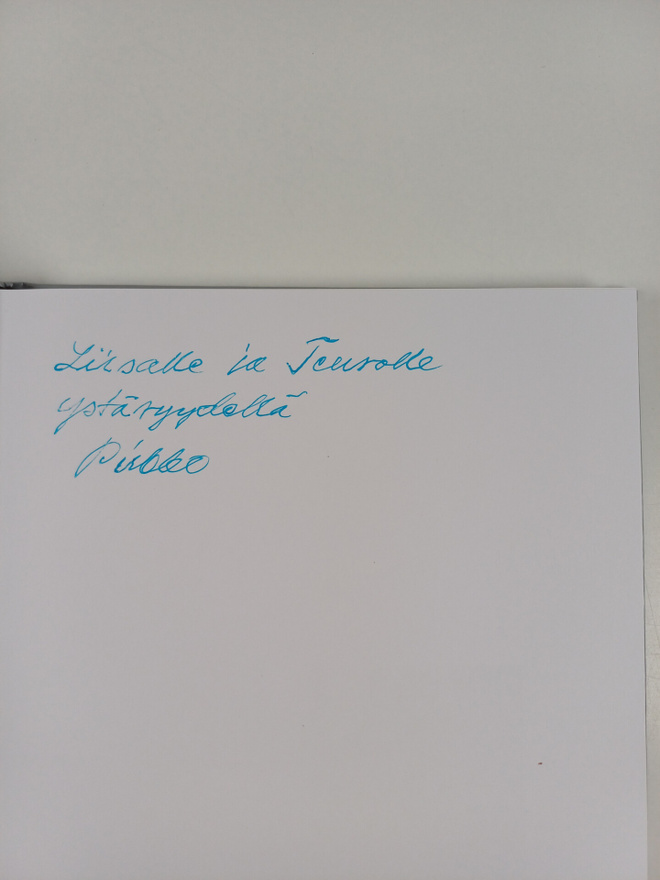 Liisalle ja Teuvolle
ystävyydellä
Pirkko